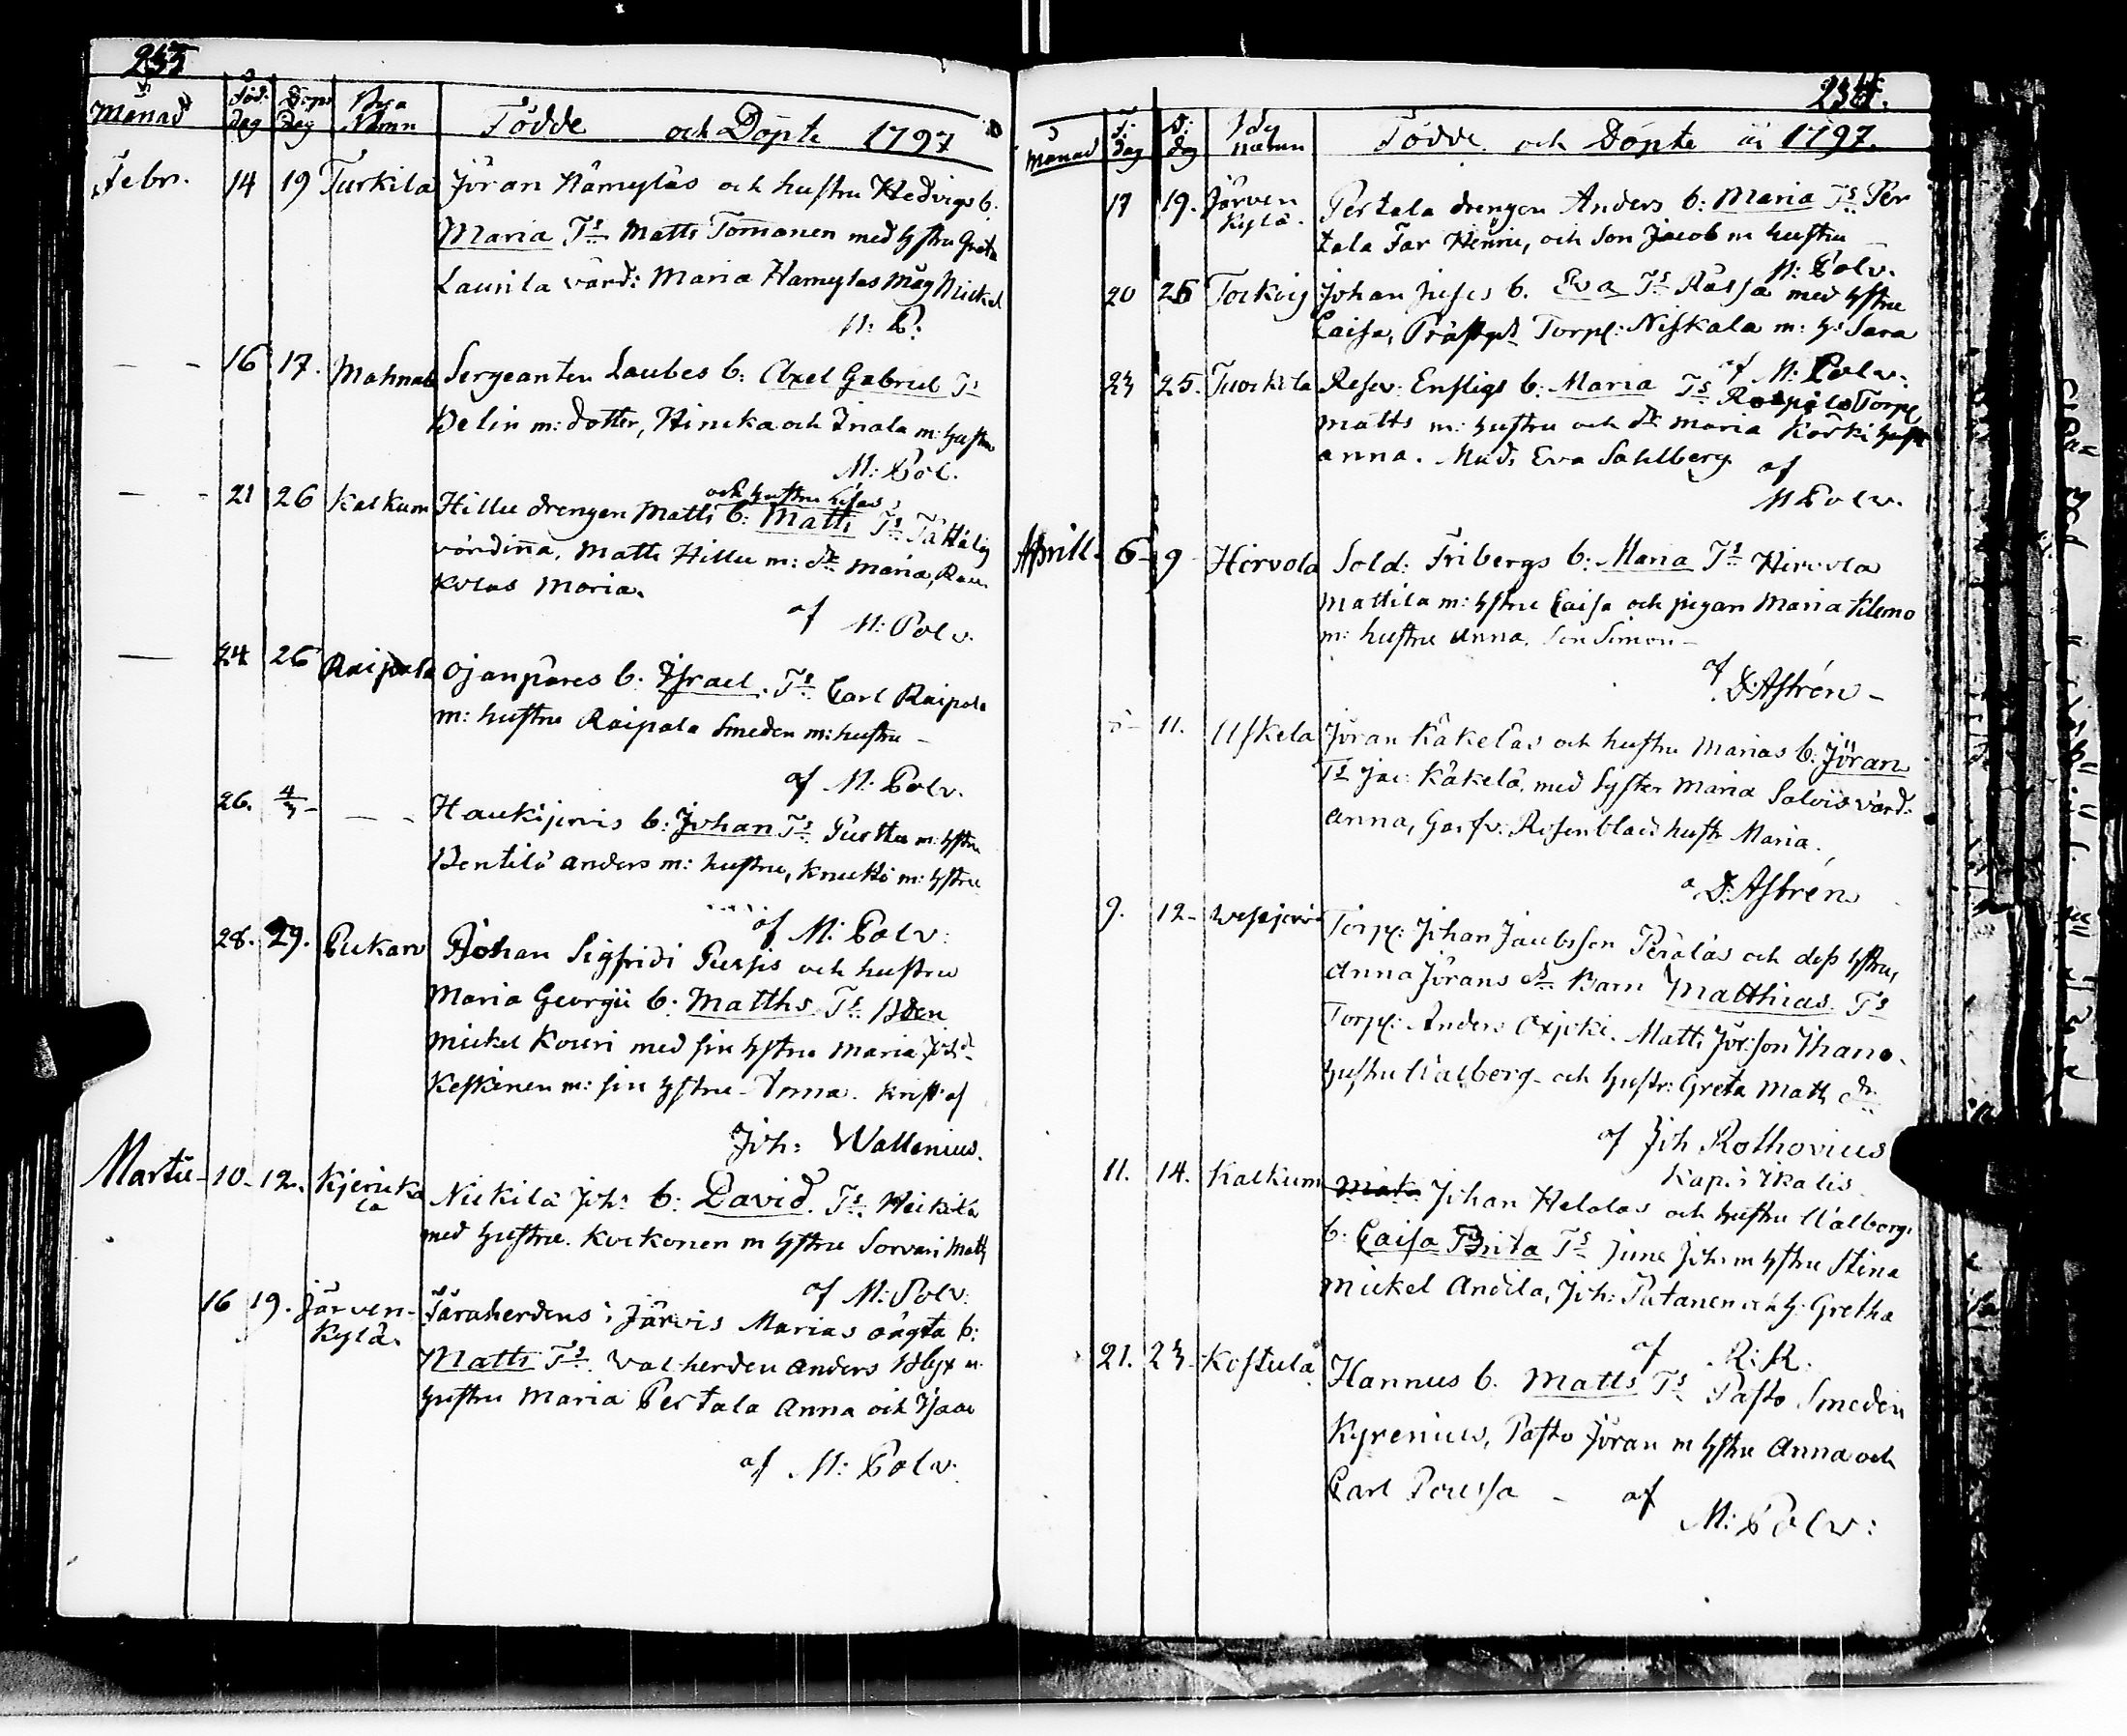 235
Månad Föd: dag Döps Dag Bya Namn Födde och Döpte 1797
Febr. 14 19 Turkila Jöran Hämyläs och hustru Hedvigs b.
Maria Ts Matts Tomanen med hstru Greta
Laurila värd: Maria Hamylas Måg Mickel
M: P:
16 17. Mahnala Sergeanten Laubes b: Axel Gabriel Ts
Belin m: dotter, Hincka och Inala m: hustru
M: Pol.
och hustru Lisas
21 26 Kalkum Hillu drengen Matts b: Matts Ts
värdinna, Matts Hillu m: dr Maria,
kulas Maria.
af M: Polv.
24 26 Raipala Ojanpäres b. Israel. Ts Carl Raipala
m: hustru Raipala Smeden m: hustru –
af M: Polv.
26. 4/3 – Haukijervis b: Johan Ts Purttu m: hstru
Bentilä Anders m: hustru, Knuuti m: hstru
af M: Polv:
28. 29. Pukara Johan Sigfridi Purjis och hustru
Maria Georgii b. Matths Ts Bden
Mickel Kouri med sin hstru Maria
Keskinen m: sin hstru – Anna. krist: af
Joh: Wallenius.
Martii – 10 – 12. Kjerickala Nickilä Joh: b: David. Ts. Heikilä
med hustru. Kockonen m hstru Sorvari Matts
af M: Polv:
16 19. Järvenkylä. Fåraherdens i Järvis Marias oägta b:
Matts Ts. Valherden Anders Blyx m
hustru Maria Pertala Anna och Isaac
af M: Polv:
234.
Månad F: dag D: dag Bya namn Födde och Döpte år 1797.
17 19. Järvenkylä. Pertala drengen Anders b: Maria Ts Per
tala Far Henric, och Son Jacob m hustru
M: Polv.
20 26 Johan b. Eva Ts Rässä med hstru
Caisa, Torp: Niskala m: h: Sara
af M: Polv:
23 25. Turkila Reserv: Ensligs b: Maria Ts Torp:
Matts m: hustru och dr Maria Korki hustr
Anna. Mad: Eva Sahlberg af
M Polv.
Aprill – 6 – 9 Hirvola Sold: Fribergs b: Maria Ts Hirvola
Mattila m: hstru Caisa och pigan Maria Klemo
m: hustru Anna. Son Simon –
af
D: Astrén –
11. Uskela Jöran Käkeläs och hustru Marias b: Jöran
Ts Jac: Käkelä, med Syster Maria Salvis värd:
Anna, Garfv: Rosenblad hustr Maria.
a D: Astrén
9. 12 – Torp: Johan Jacobsson Peräläs och dess hstru,
Anna Jörans dr. Barn Matthias. Ts
Torp: Anders Matts Jörsson
hustru Walberg – och hustr: Greta Matts dr
af Joh Rothovius
Kap: i Ikalis
11. 14. Kalkum Johan Helalas och hustru Walborgs
b: Caisa Brita Ts June Joh: m hstru Stina
Mickel Andila, Joh: Patanen och h: Gretha
af R: R.
21. 23 – Kostula Hannus b. Matts Ts Pasto Smeden
Kyrenius, Pasto Jöran m hstru Anna och
Carl Poussa – af
M: Polv: